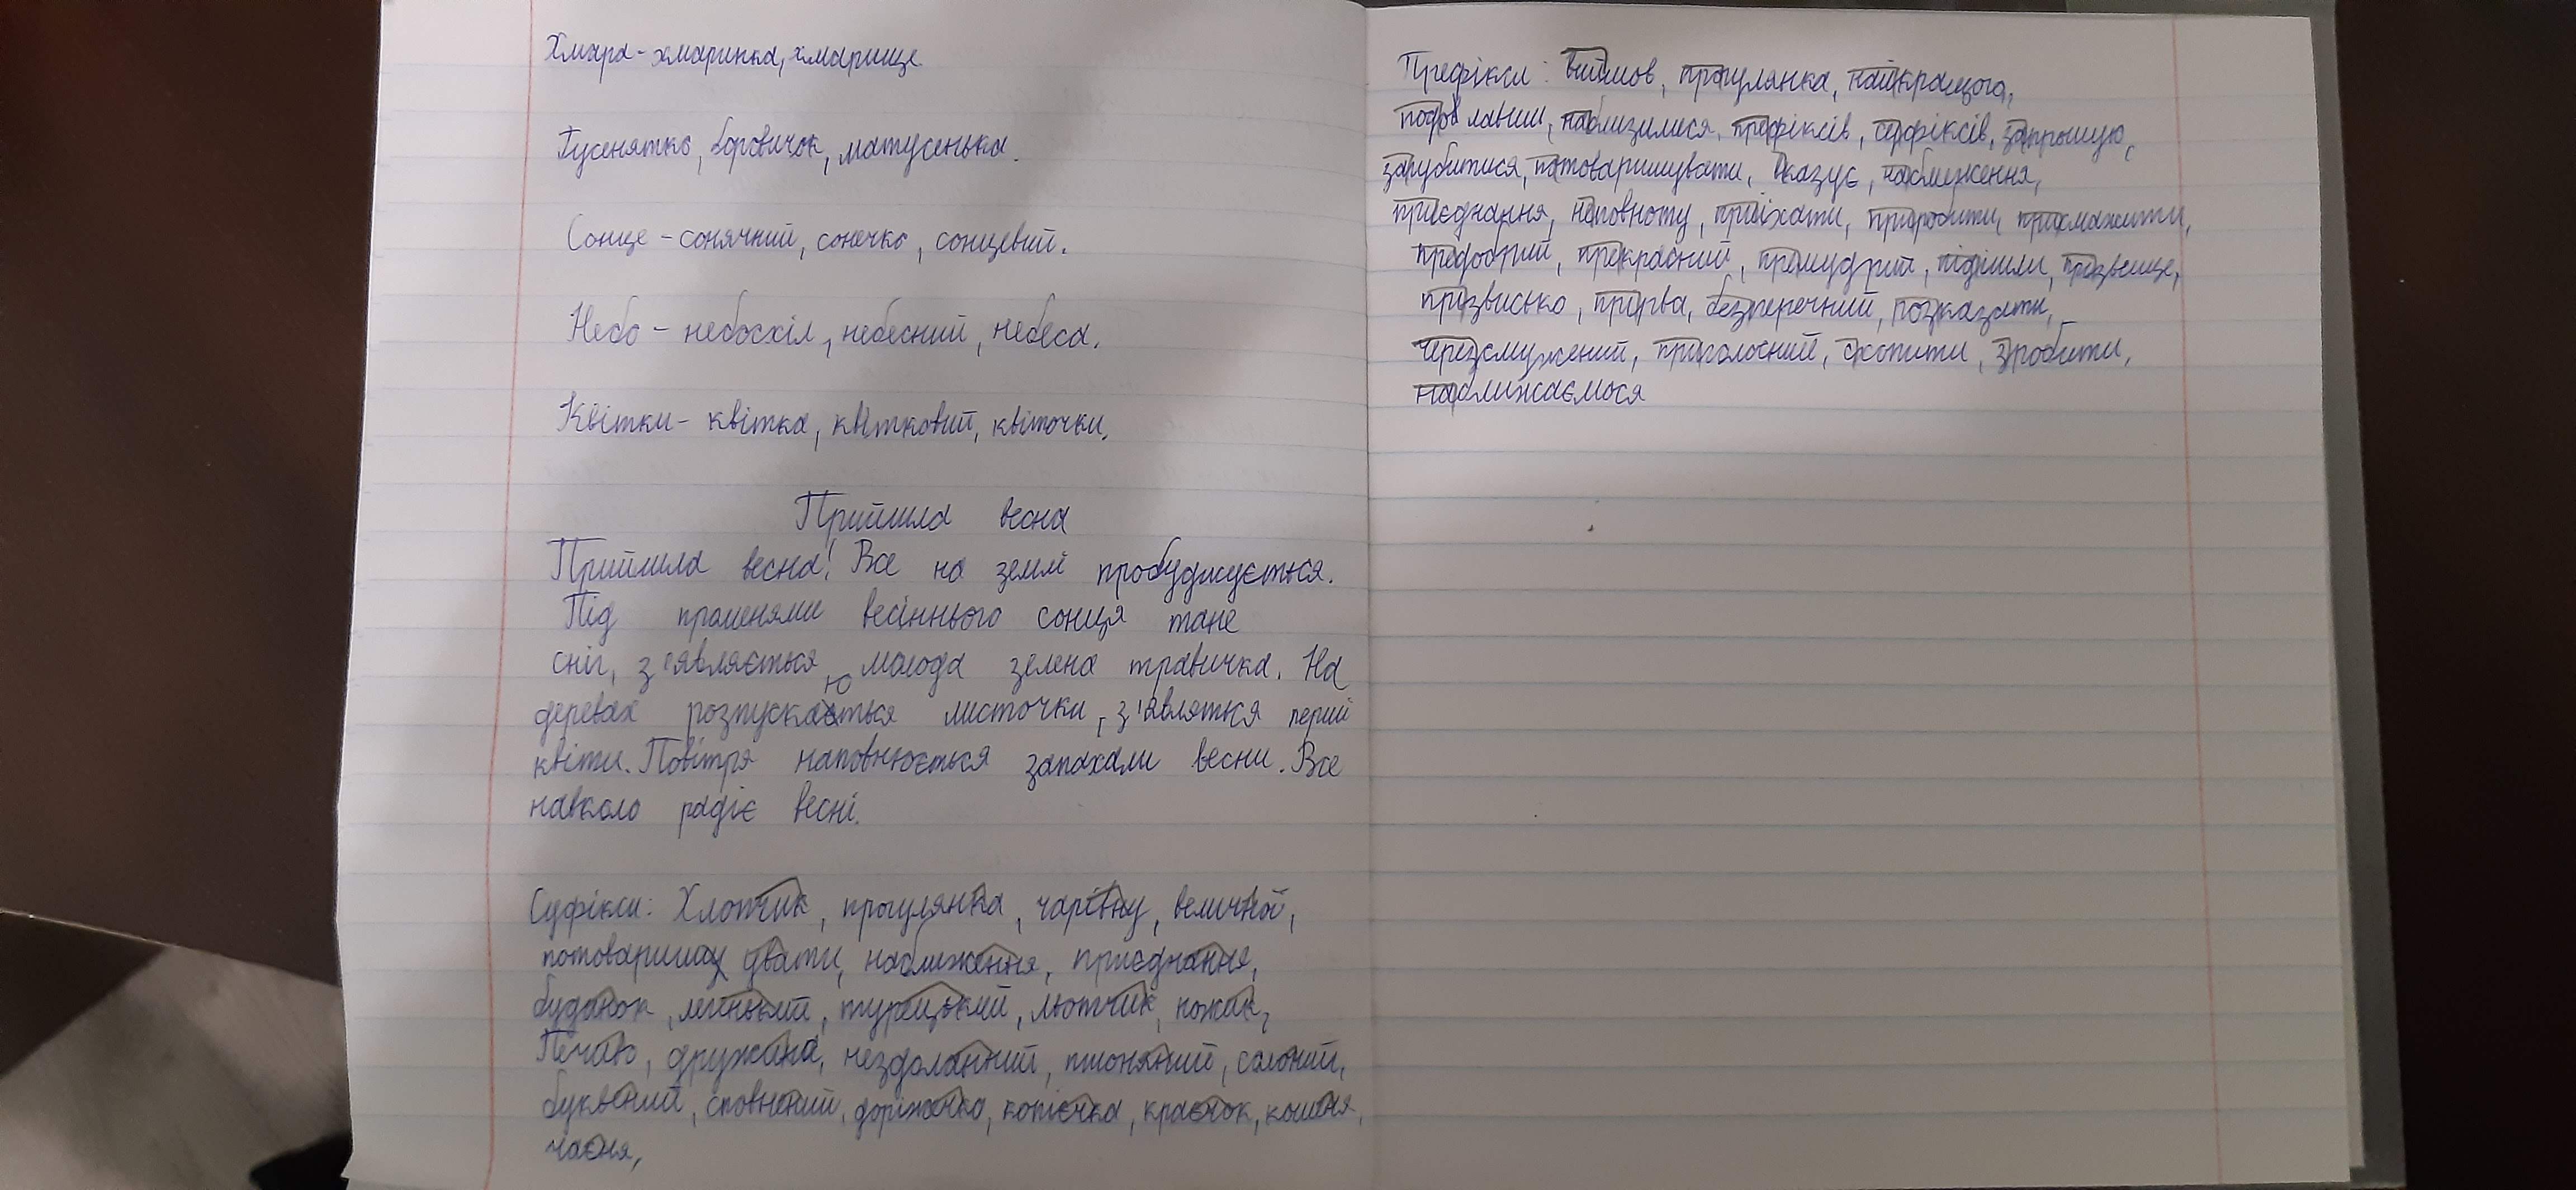 Хмара - хмаринка, хмарище.
Гусенятко, боровичок, матусенька.
Сонце - сонячний, сонечко, сонцевий.
Небо - небосхіл, небесний, небеса.
Квітки - квітка, квітковий, квіточки.
Прийшла весна
Прийшла весна! Все на землі пробуджується.
Під променями весіннього сонця тане
сніг, з'являється молода зелена травичка. На
деревах розпускаються листочки, з'являться перші
квіти. Повітря наповнюється запахами весни. Все
навколо радіє весні.
Суфікси: Хлопчик, прогулянка, чарівну, величної,
потоваришу увати, наближення, приєднання,
будинок, турецький, льотчик, ножик,
Печаю, дружина, нездоланний, пшоняний, солоний,
буквений, сповнений, доріжечка, копієчка, краєчок, кошеня,
чаєня,
Префікси: вийшов, прогулянка, найкращого,
подолавши, наблизилися, префіксів, суфіксів, запрошую,
зарубитися, потоваришувати, вказує, наближення,
приєднання, неповноту, приїхати, приробити, присмажити,
предобрий, прекрасний, премудрий, підійшли, прізвище,
прізвисько, прірва, безперечний, розказати,
черезсмужений, приголосний, схопити, зробити,
наближаємося